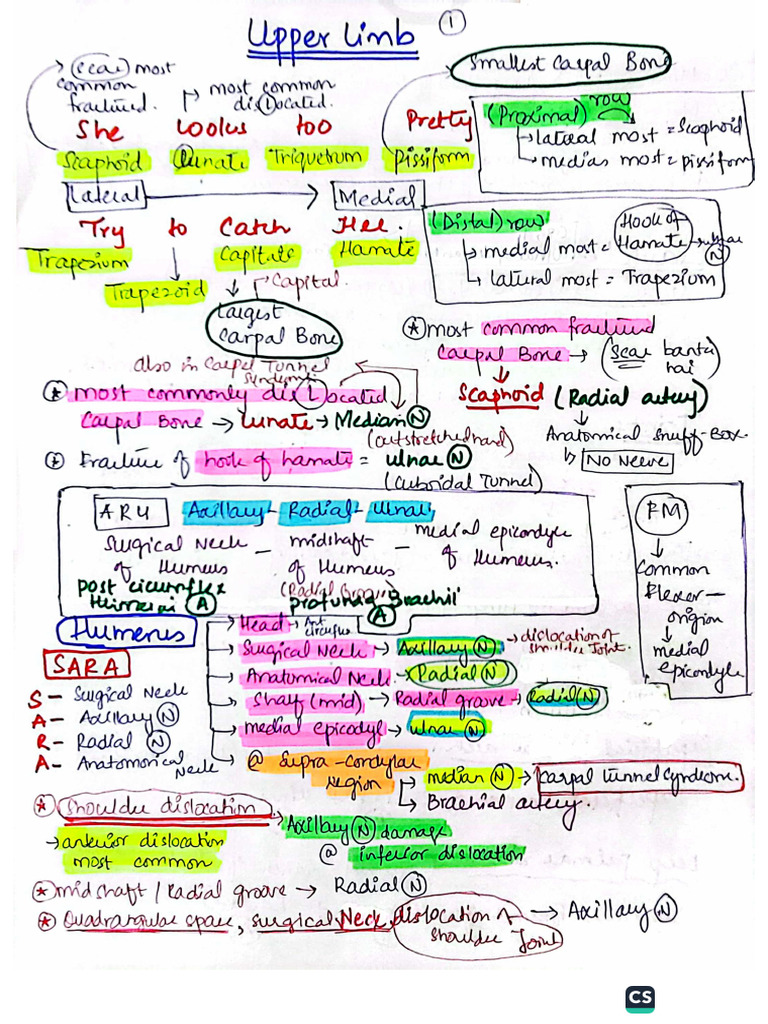 Upper Limb
1
Scar most common fractured.
most common disLocated.
Smallest Carpal Bone
She Looks too Pretty
Scaphoid Lunate Triquetrum Pissiform
Lateral → Medial
(Proximal) row
lateral most = Scaphoid
medial most = pissiform
Try to Catch Her.
Trapezium Trapezoid Capitate Hamate
Capital.
Largest Carpal Bone
(Distal) row
medial most = Hook of Hamate → ulnar N
lateral most = Trapezium
* most common fractured
Carpal Bone → (Scar banta hai)
Scaphoid (Radial artery)
Anatomical snuff-Box
No Nerve
also in Carpel Tunnel Syndrome
* most commonly disLocated
Carpal Bone → Lunate → Median N
(outstretched hand)
* Fracture of hook of hamate = ulnar N
(Cuboidal Tunnel)
ARU Axillary - Radial - Ulnar
Surgical Neck of Humerus – midshaft of Humerus – medial epicondyle of Humerus.
(Radial Groove)
post circumflex Humeral A
profunda Brachii A
FM
Common
Flexor
origion
medial
epicondyle
Humerus
Head → Ant circuflex
Surgical Neck → Axillary N → dislocation of shoulder Joint.
Anatomical Neck - Radial N
Shaft (mid) → Radial groove → Radial N
medial epicodyl → ulnar N
@ Supra-condylar region
median N → Carpal tunnel Cyndrome.
Brachial artery.
SARA
S - Surgical Neck
A - Axillary N
R - Radial N
A - Anatomorical Neck
* Shoulder dislocation
→ anterior dislocation
most common
Axillary N damage
@ inferior dislocation
* midshaft / Radial groove → Radial N
* Quadrangular space, surgical Neck, dislocation of shoulder Joint → Axillary N
CS